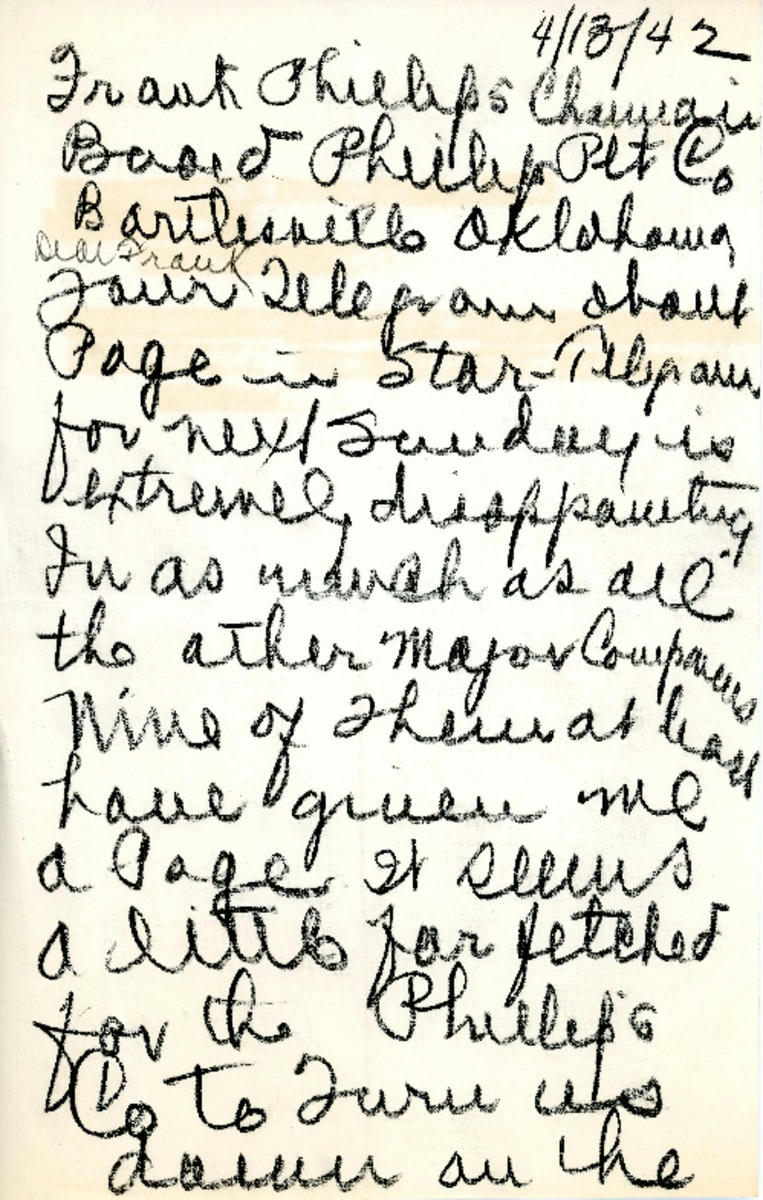 4/13/42
Frank Phillips Chairman
Board Phillips Pet Co
Bartlesville Oklahoma
Dear Frank
Your Telegram about
Page in Star-Telegram
for next Sunday is
extremely disappointing
In as much as all
the other Major Companies
Nine of them at least
have given me
a Page it seems
a little far fetched
for the Phillips
Co to Turn us
down on the